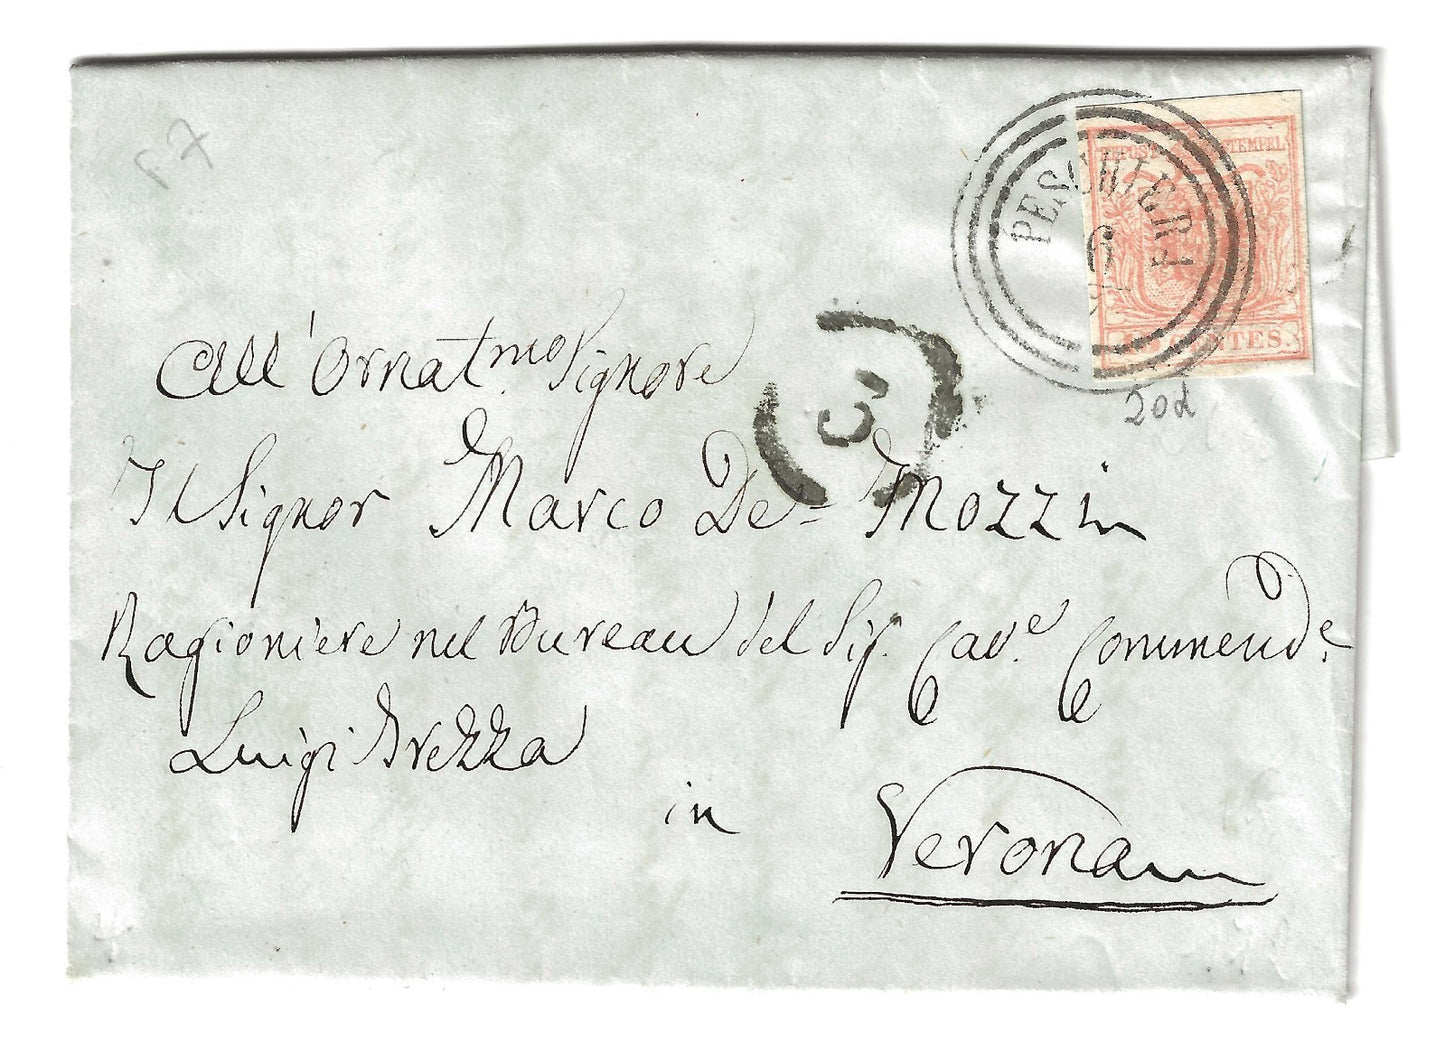 P7
K.K.POST STEMPEL
PESCHIERA
6
CENTES.
20d
C.
All'Ornatmo Signore
Il Signor Marco De=Mozzi
Ragioniere nel Bureau del Sigr. Cave. Commende.
Luigi Trezza
in
Verona